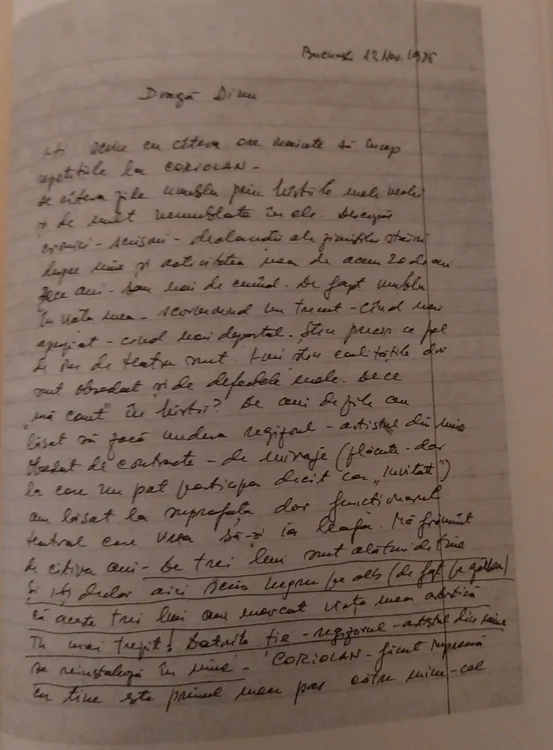 București 12 Nov. 1986
Dragă Dinu
Îți scriu cu câteva ore înainte să încep
repetițiile la CORIOLAN -
De câteva zile umblu prin hârtiile mele vechi
și de mult neumblate în ele. Descopăr
cronici - scrisori - declarații ale ziariștilor străini
despre mine și activitatea mea de acum 20 de ani
zece ani - sau mai de curând. De fapt umblu
în viața mea - scormonind un trecut - când mai
apropiat - când mai depărtat. Știu precis ce fel
de om de teatru sunt. Îmi știu calitățile dar
sunt obsedat și de defectele mele. De ce
"mă caut" în hârtii? De ani de zile am
lăsat să zacă undeva regizorul - artistul din mine
Obsedat de contracte - de miraje (plăcute - dar
la care nu pot participa decât ca "invitat")
am lăsat la suprafață doar funcționarul
teatral care vrea să-și ia leafa. Mă frământ
de câțiva ani - De trei luni sunt alături de tine
și îți declar aici scris negru pe alb (de fapt pe galben)
că aceste trei luni au marcat viața mea artistică
Tu m-ai trezit! Datorită ție - regizorul - artistul din mine
se reinstalează în mine - CORIOLAN - făcut împreună
cu tine este primul meu pas către mine - cel